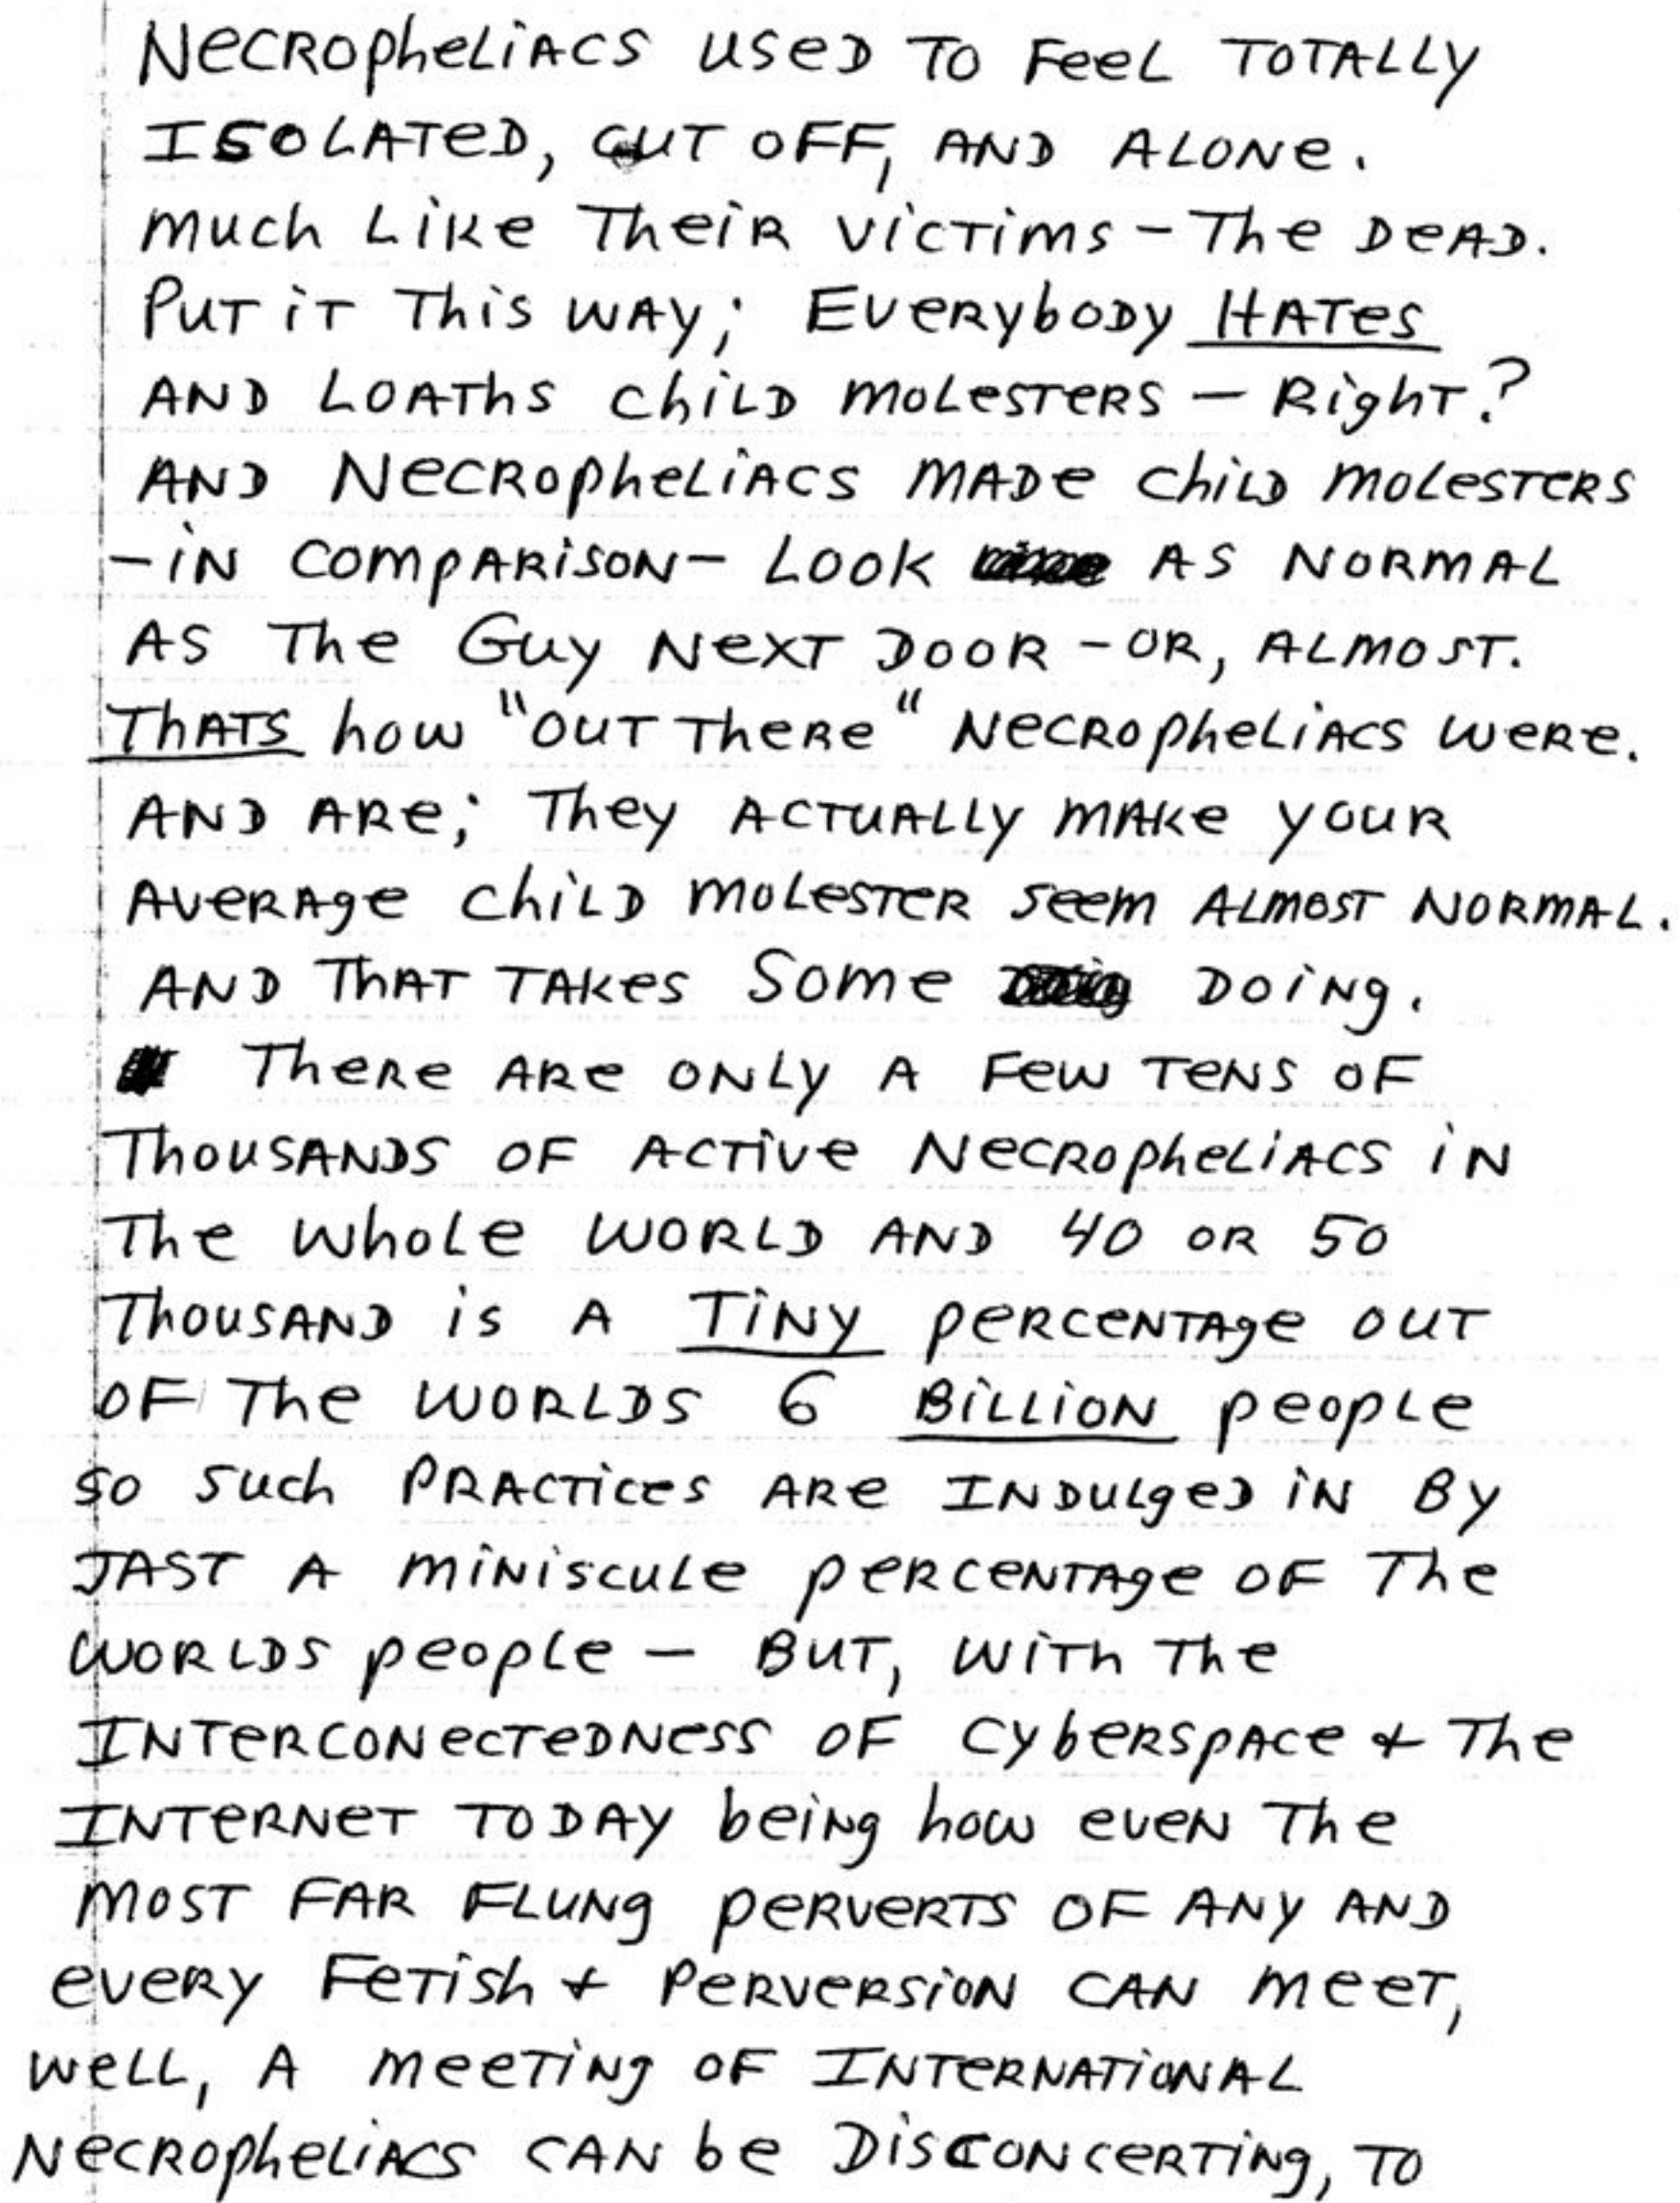 NecropheLiACS used TO FeeL TOTALLY
ISOLATED, CUT OFF, AND ALONe.
much Like Their VicTims - The DeAD.
PuT iT This WAY; EveRybODY HATes
AND LOATHS chiLD moLesTeRS - RighT?
AND NecropheLiACS MADe chiLD moLesTeRS
-iN compARisoN- Look AS NORMAL
AS The Guy NexT DOOR - OR, ALMOST.
ThATS how "OUT TheRe" NecropheLiACS weRe.
AND ARe; They ACTuALLy mAke youR
AveRAge chiLD moLesTeR seem ALmOST NORMAL.
AND ThAT TAKes Some DOiNg.
TheRe ARe ONLy A Few TeNS OF
ThouSANDS OF ACTive NecropheLiACS iN
The whoLe WORLD AND 40 OR 50
ThouSAND is A TiNY peRceNTAge OUT
OF The WORLDS 6 BiLLiON peopLe
so such PRACTices ARe INDuLgeD iN By
JAST A miNiscuLe peRceNTAge OF The
WORLDS peopLe - BuT, WiTh The
INTeRcONecTeDNess OF cybeRspAce + The
INTeRNeT TODAY beiNg how eveN The
mosT FAR FLuNg peRveRTS OF ANy AND
eveRy FeTish + PeRveRsiON CAN meeT,
weLL, A meeTiNg OF INTeRNATiONAL
NecropheLiACS CAN be DiscONceRTiNg, TO